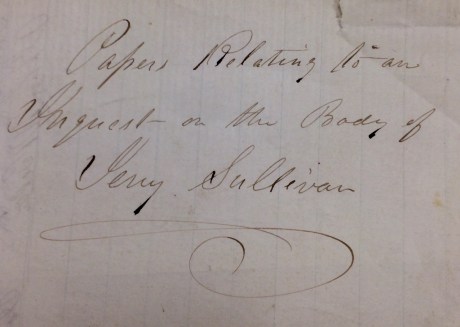 Papers Relating to an
Inquest on the Body of
Jerry Sullivan